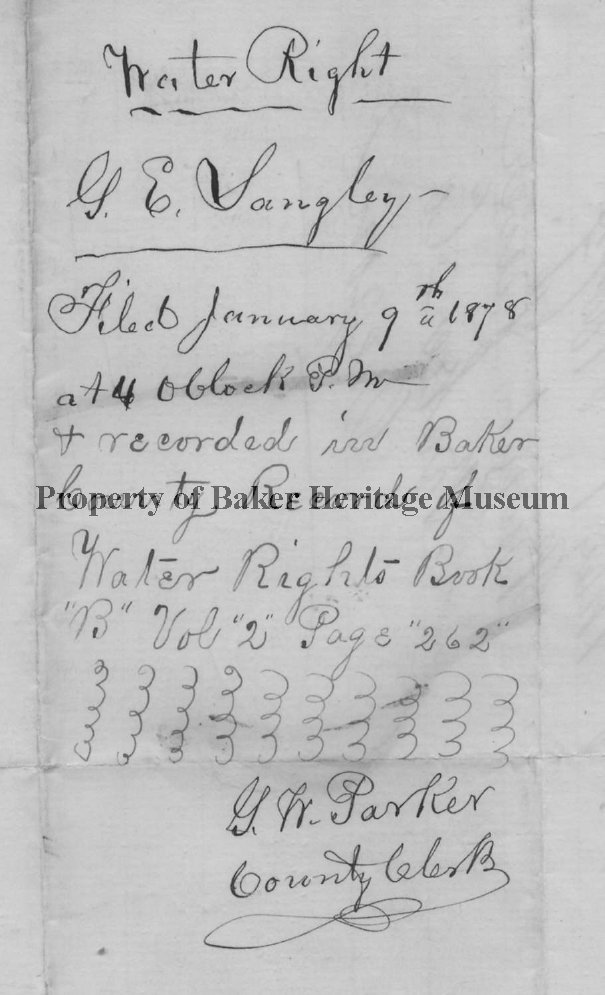 Water Right
G. E. Langley
Filed January 9th 1878
at 4 Oclock P. M
& recorded in Baker
County Records of
Property of Baker Heritage Museum
Water Rights Book
"B" Vol "2" Page "262"
G. W. Parker
County Clerk